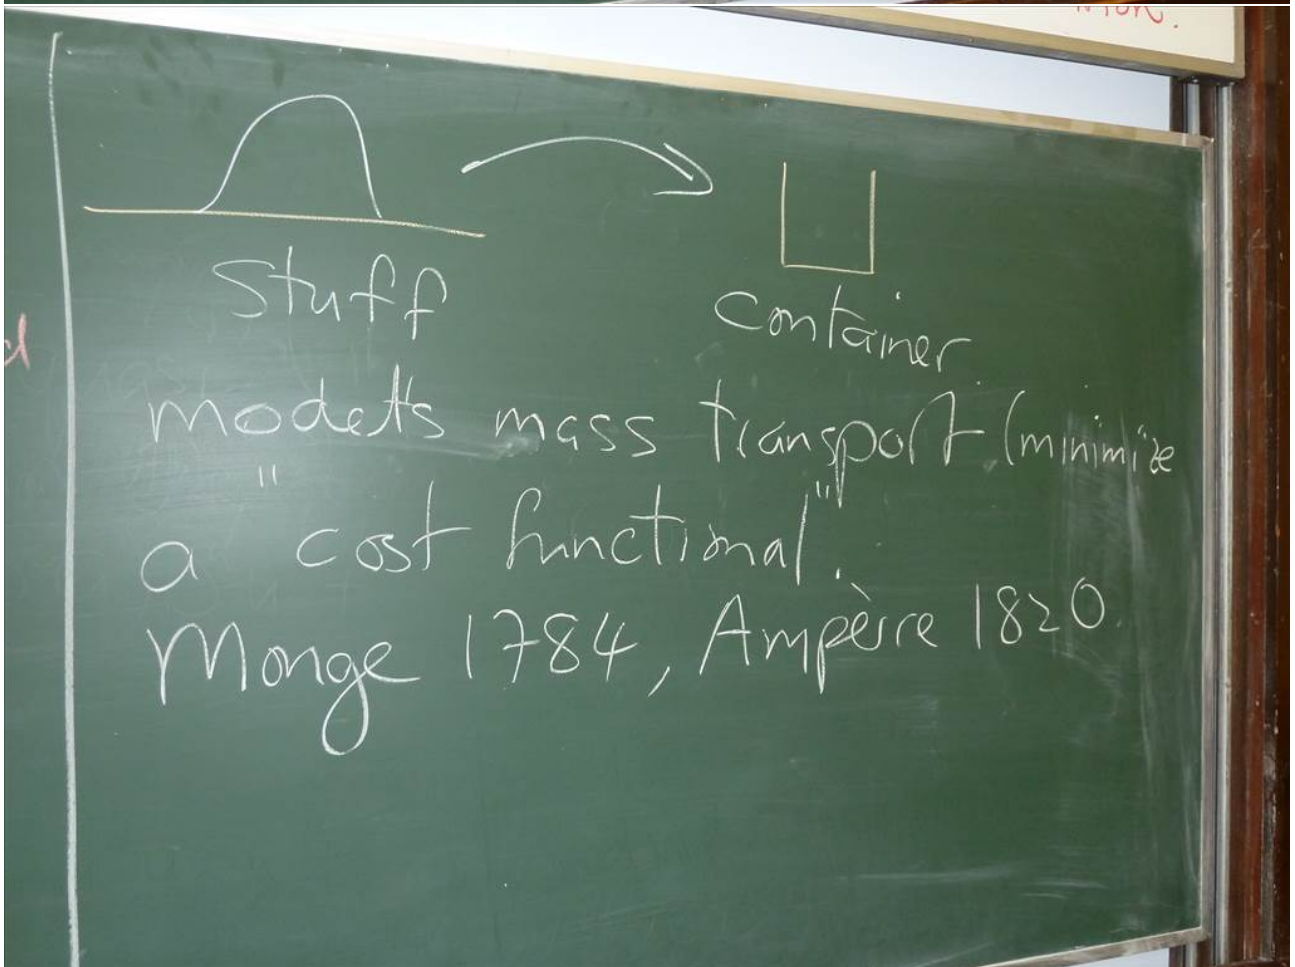 Stuff
container
models mass transport (minimize
a "cost functional".
Monge 1784, Ampère 1820.